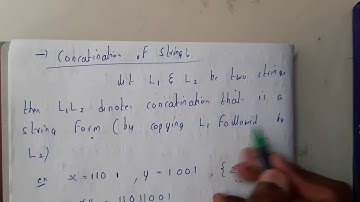 → Concatination of String:
let L₁ & L₂ be two string
then L₁L₂ denotes concatination that is a
string form (by copying L₁ followed by
L₂)
ex x = 1101, y = 1001, {
= 11011001